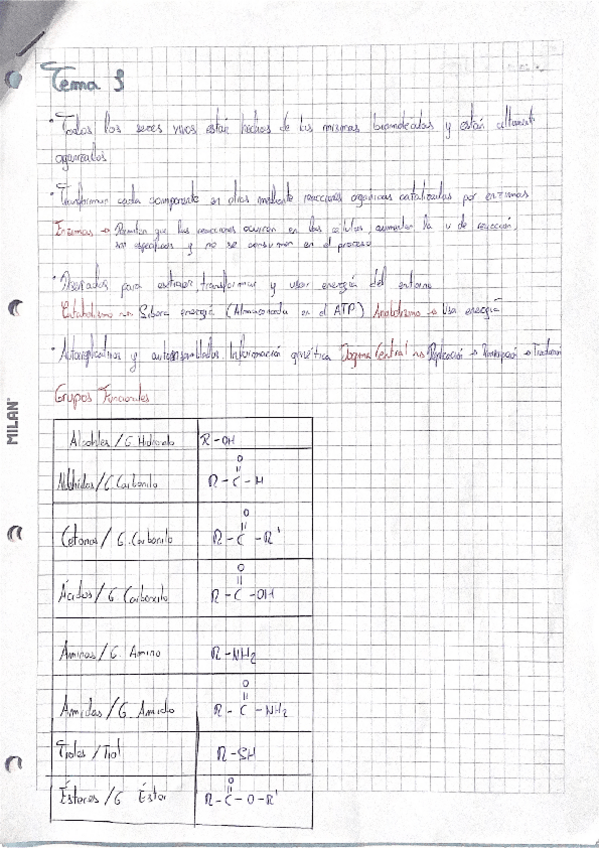 Tema 3
• Todos los seres vivos están hechos de las mismas biomoléculas y están altamente
organizados
• Transforman cada componente en otros mediante reacciones orgánicas catalizadas por enzimas
Enzimas → Permiten que las reacciones ocurran en las células, aumentan la v de reacción,
son específicas y no se consumen en el proceso
• Diseñados para extraer, transformar y usar energía del entorno
Catabolismo → Libera energía (Almacenada en el ATP) Anabolismo → Usa energía
• Autoreplicativos y autoensamblados. Información genética Dogma Central → Replicación → Transcripción → Traducción
Grupos Funcionales
Alcoholes / G Hidroxilo R-OH
O
Aldehidos / G Carbonilo R-C-H
O
Cetonas / G. Carbonilo R-C-R'
O
Ácidos / G Carboxilo R-C-OH
Aminas / G. Amino R-NH2
O
Amidas / G. Amido R-C-NH2
Tioles / Tiol R-SH
O
Ésteres / G Éster R-C-O-R'
MILAN